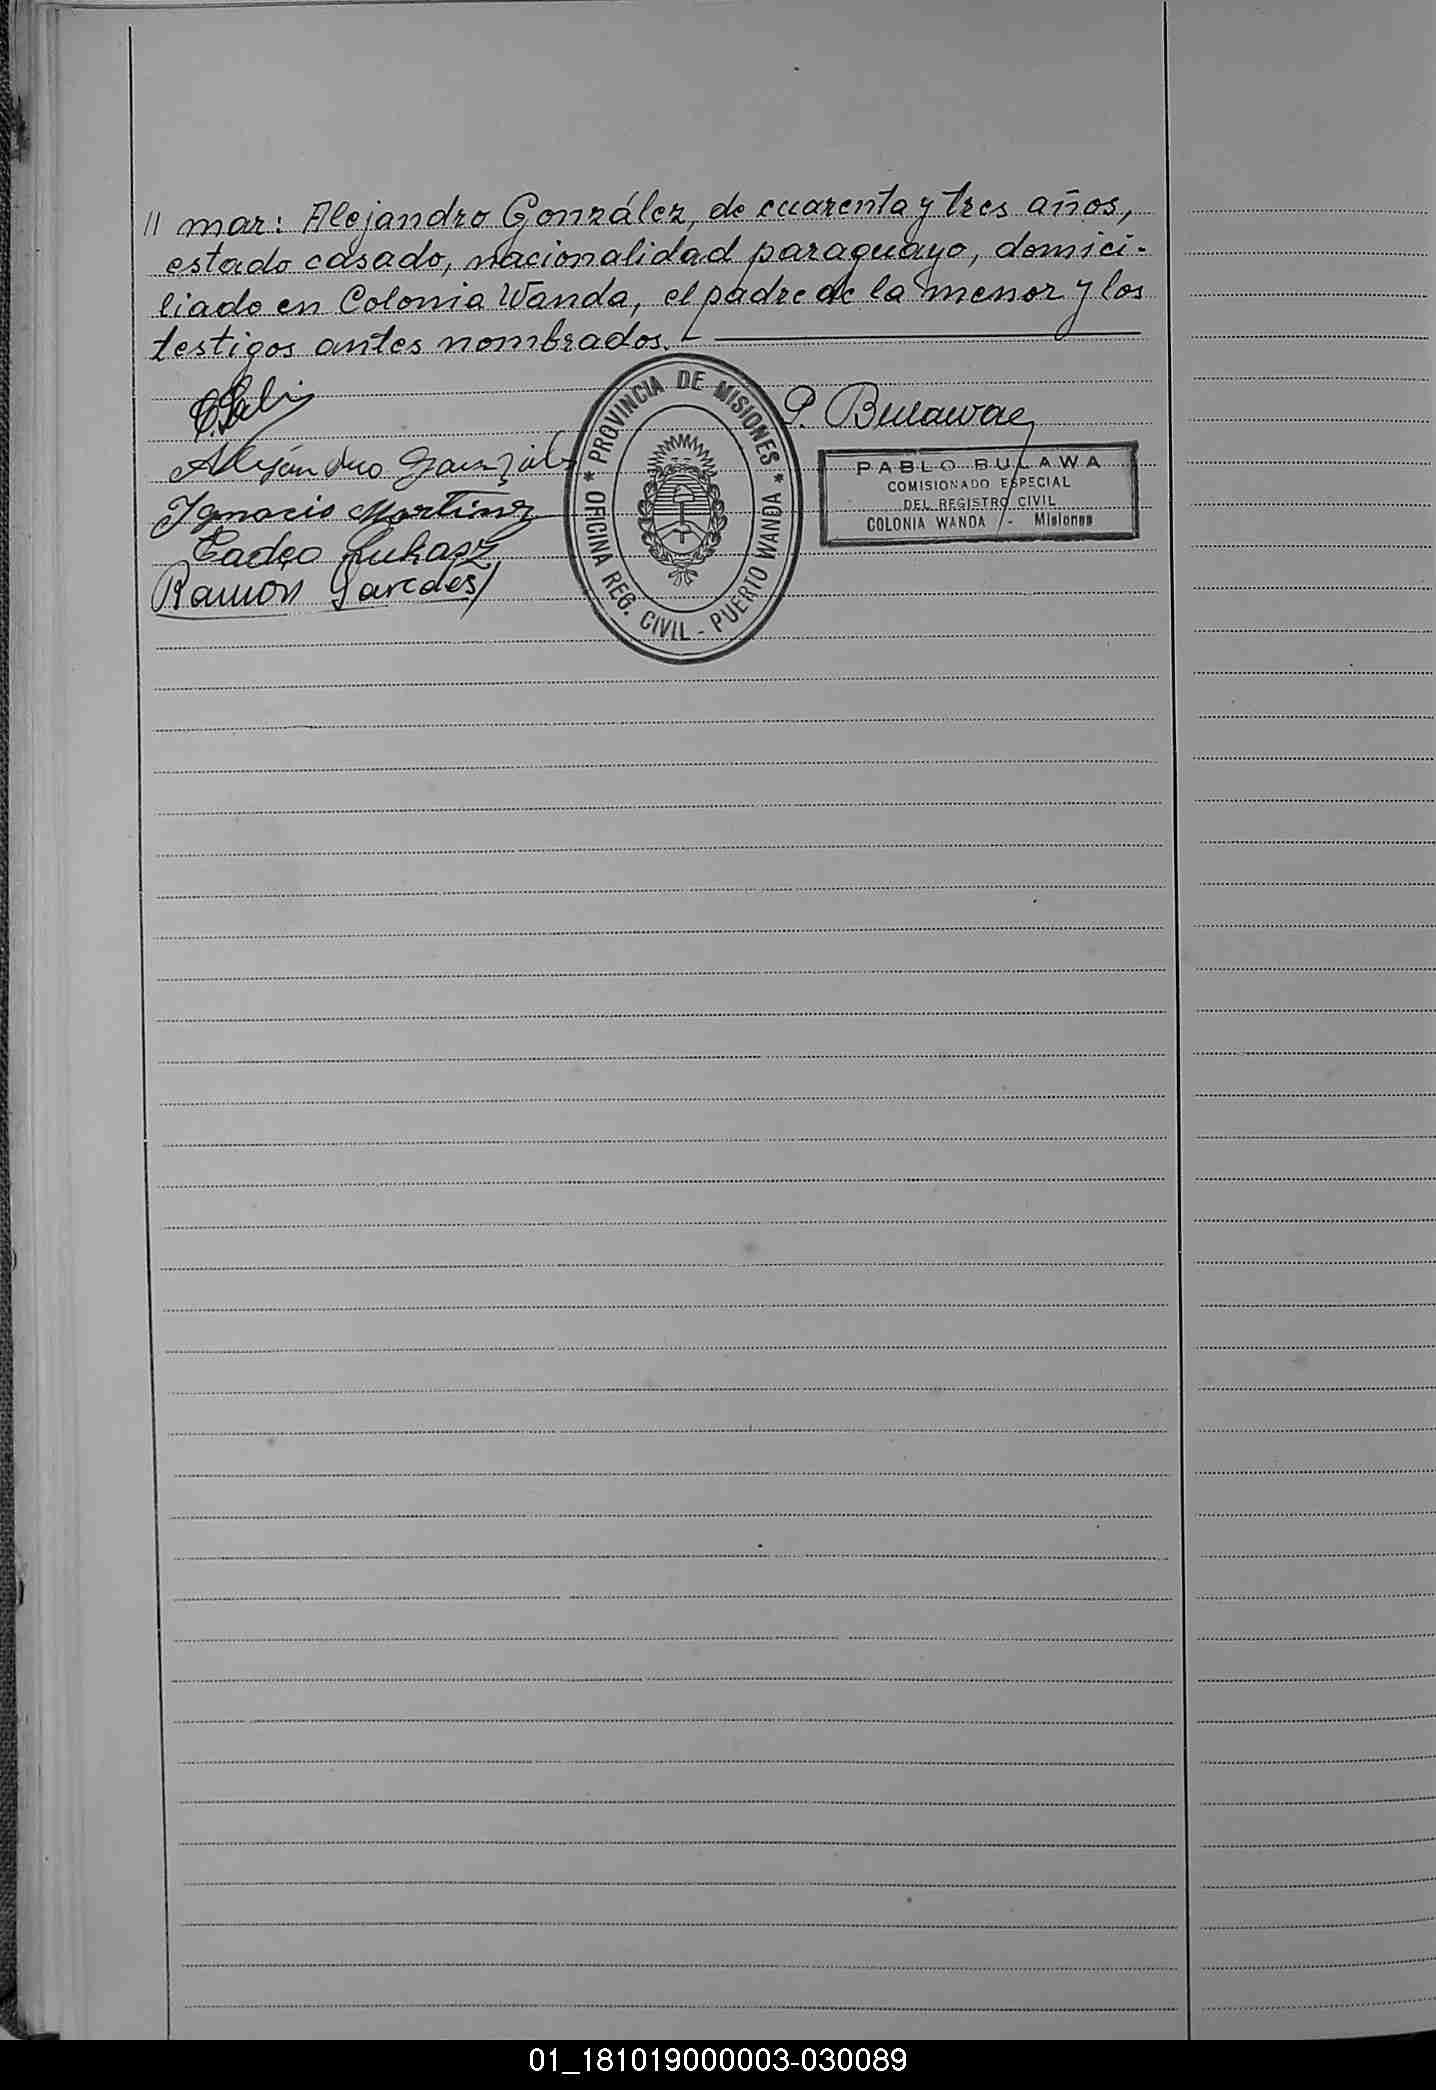 // mar: Alejandro González, de cuarenta y tres años,
estado casado, nacionalidad paraguayo, domici-
liado en Colonia Wanda, el padre de la menor y los
testigos antes nombrados.
P. Bulawa
Alejandro Gonzalez
Ignacio Martinez
Tadeo Lukasz
Ramon Paredes
* PROVINCIA DE MISIONES *
OFICINA REG. CIVIL - PUERTO WANDA
PABLO BULAWA
COMISIONADO ESPECIAL
DEL REGISTRO CIVIL
COLONIA WANDA - Misiones
01_181019000003-030089